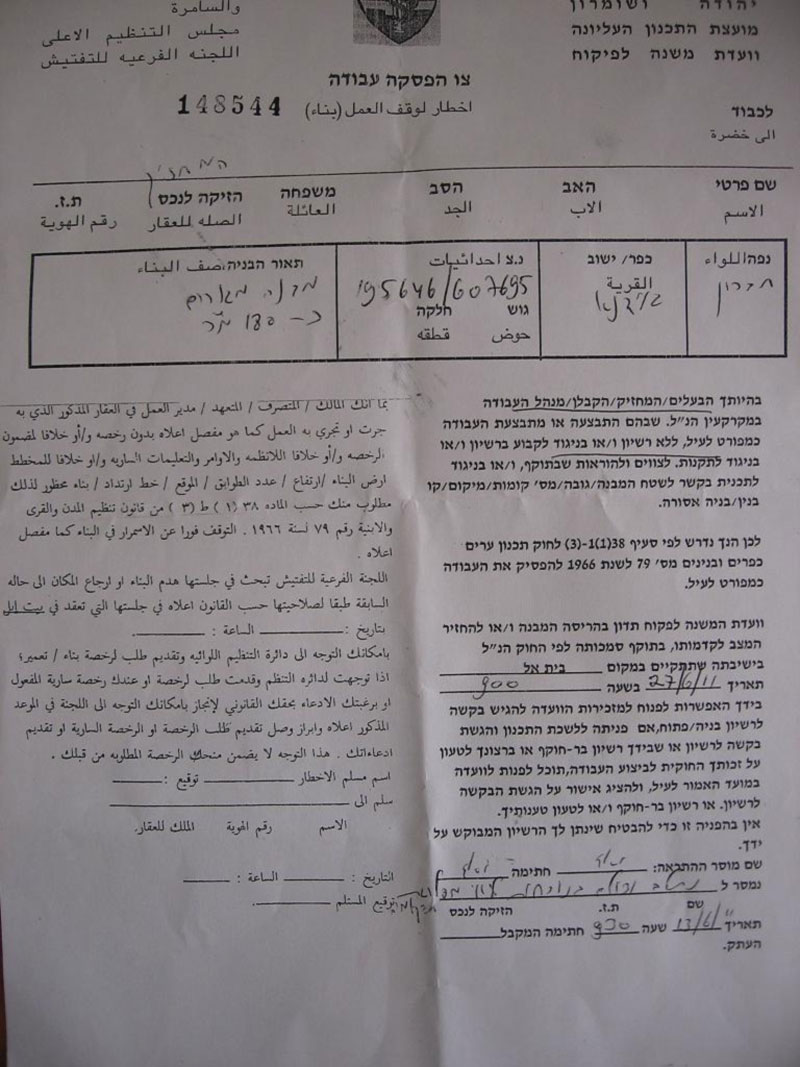 יהודה ושומרון
מועצת התכנון העליונה
וועדת משנה לפיקוח
والسامرة
مجلس التنظيم الاعلى
اللجنه الفرعيه للتفتيش
צו הפסקה עבודה
اخطار لوقف العمل (بناء)
148544
לכבוד
الى حضرة
שם פרטי האב הסב משפחה הזיקה לנכס ת.ז.
الاسم الاب الجد العائلة الصله للعقار رقم الهوية
נפה/اللواء
חברון
כפר/ ישוב
القرية
נ.צ احداثيات
195646/607695
גוש חלקה
حوض قطقه
תאור הבניה/صف البناء
מבנה מגורים
כ- 180 מ"ר
בהיותך הבעלים/המחזיק/הקבלן/מנהל העבודה
במקרקעין הנ"ל. שבהם התבצעה או מתבצעת העבודה
כמפורט לעיל, ללא רשיון ו/או בניגוד לקבוע ברשיון ו/או
בניגוד לתקנות. לצווים ולהוראות שבתוקף, ו/או בניגוד
לתכנית בקשר לשטח המבנה/גובה/מס' קומות/מיקום/קו
בנין/בניה אסורה.
לכן הנך נדרש לפי סעיף 38(1)-(3) לחוק תכנון ערים
כפרים ובנינים מס' 79 לשנת 1966 להפסיק את העבודה
כמפורט לעיל.
וועדת המשנה לפקוח תדון בהריסה המבנה ו/או להחזיר
המצב לקדמותו, בתוקף סמכותה לפי החוק הנ"ל
בישיבתה שתתקיים במקום בית אל
תאריך 27/6/11 בשעה 900
בידך האפשרות לפנות למזכירות הוועדה להגיש בקשה
לרשיון בניה/פתוח, אם פניתה ללשכת התכנון והגשת
בקשה לרשיון או שבידך רשיון בר-חוקף או ברצונך לטעון
על זכותך החוקית לביצוע העבודה, תוכל לפנות לוועדה
במועד האמור לעיל, ולהציג אישור על הגשת הבקשה
לרשיון. או רשיון בר-חוקף ו/או לטעון טענותיך.
אין בהפניה זו כדי להבטיח שינתן לך הרשיון המבוקש על
ידך.
שם מוסר ההתראה: חתימה
נמסר ל
שם ת.ז. הזיקה לנכס
תאריך 13/6/11 שעה 930 חתימה המקבל
העתק.
بما انك المالك / المتصرف / المتعهد / مدير العمل في العقار المذكور الذي به
جرت او تجري به العمل كما هو مفصل اعلاه بدون رخصه و/أو خلافا لمضمون
الرخصه و/أو خلافا للانظمه والاوامر والتعليمات الساريه و/او خلافا للمخطط
ارض البناء /ارتفاع / عدد الطوابق / الموقع / خط ارتداد / بناء محظور لذلك
مطلوب منك حسب الماده ٣٨ (١) ط (٣) من قانون تنظيم المدن والقرى
والابنية رقم ٧٩ لسنة ١٩٦٦. التوقف فورا عن الاسمرار في البناء كما مفصل
اعلاه.
اللجنة الفرعية للتفتيش تبحث في جلستها هدم البناء او ارجاع المكان الى حاله
السابقة طبقا لصلاحيتها حسب القانون اعلاه في جلستها التي تعقد في بيت ايل
بتاريخ : الساعة :
بامكانك التوجه الى دائرة التنظيم اللوائيه وتقديم طلب لرخصة بناء / تعمير؛
اذا توجهت لدائره التنظم وقدمت طلب لرخصة او عندك رخصة سارية المفعول
او برغبتك الادعاء بحقك القانوني لإنجاز بامكانك التوجه الى اللجنة في الموعد
المذكور اعلاه وابراز وصل تقديم طلب الرخصة او الرخصة السارية او تقديم
ادعاءاتك. هذا التوجه لا يضمن منحك الرخصة المطلوبه من قبلك.
اسم مسلم الاخطار توقيع :
سلم الى
الاسم رقم الهوية الملك للعقار.
التاريخ : الساعة :
توقيع المستلم